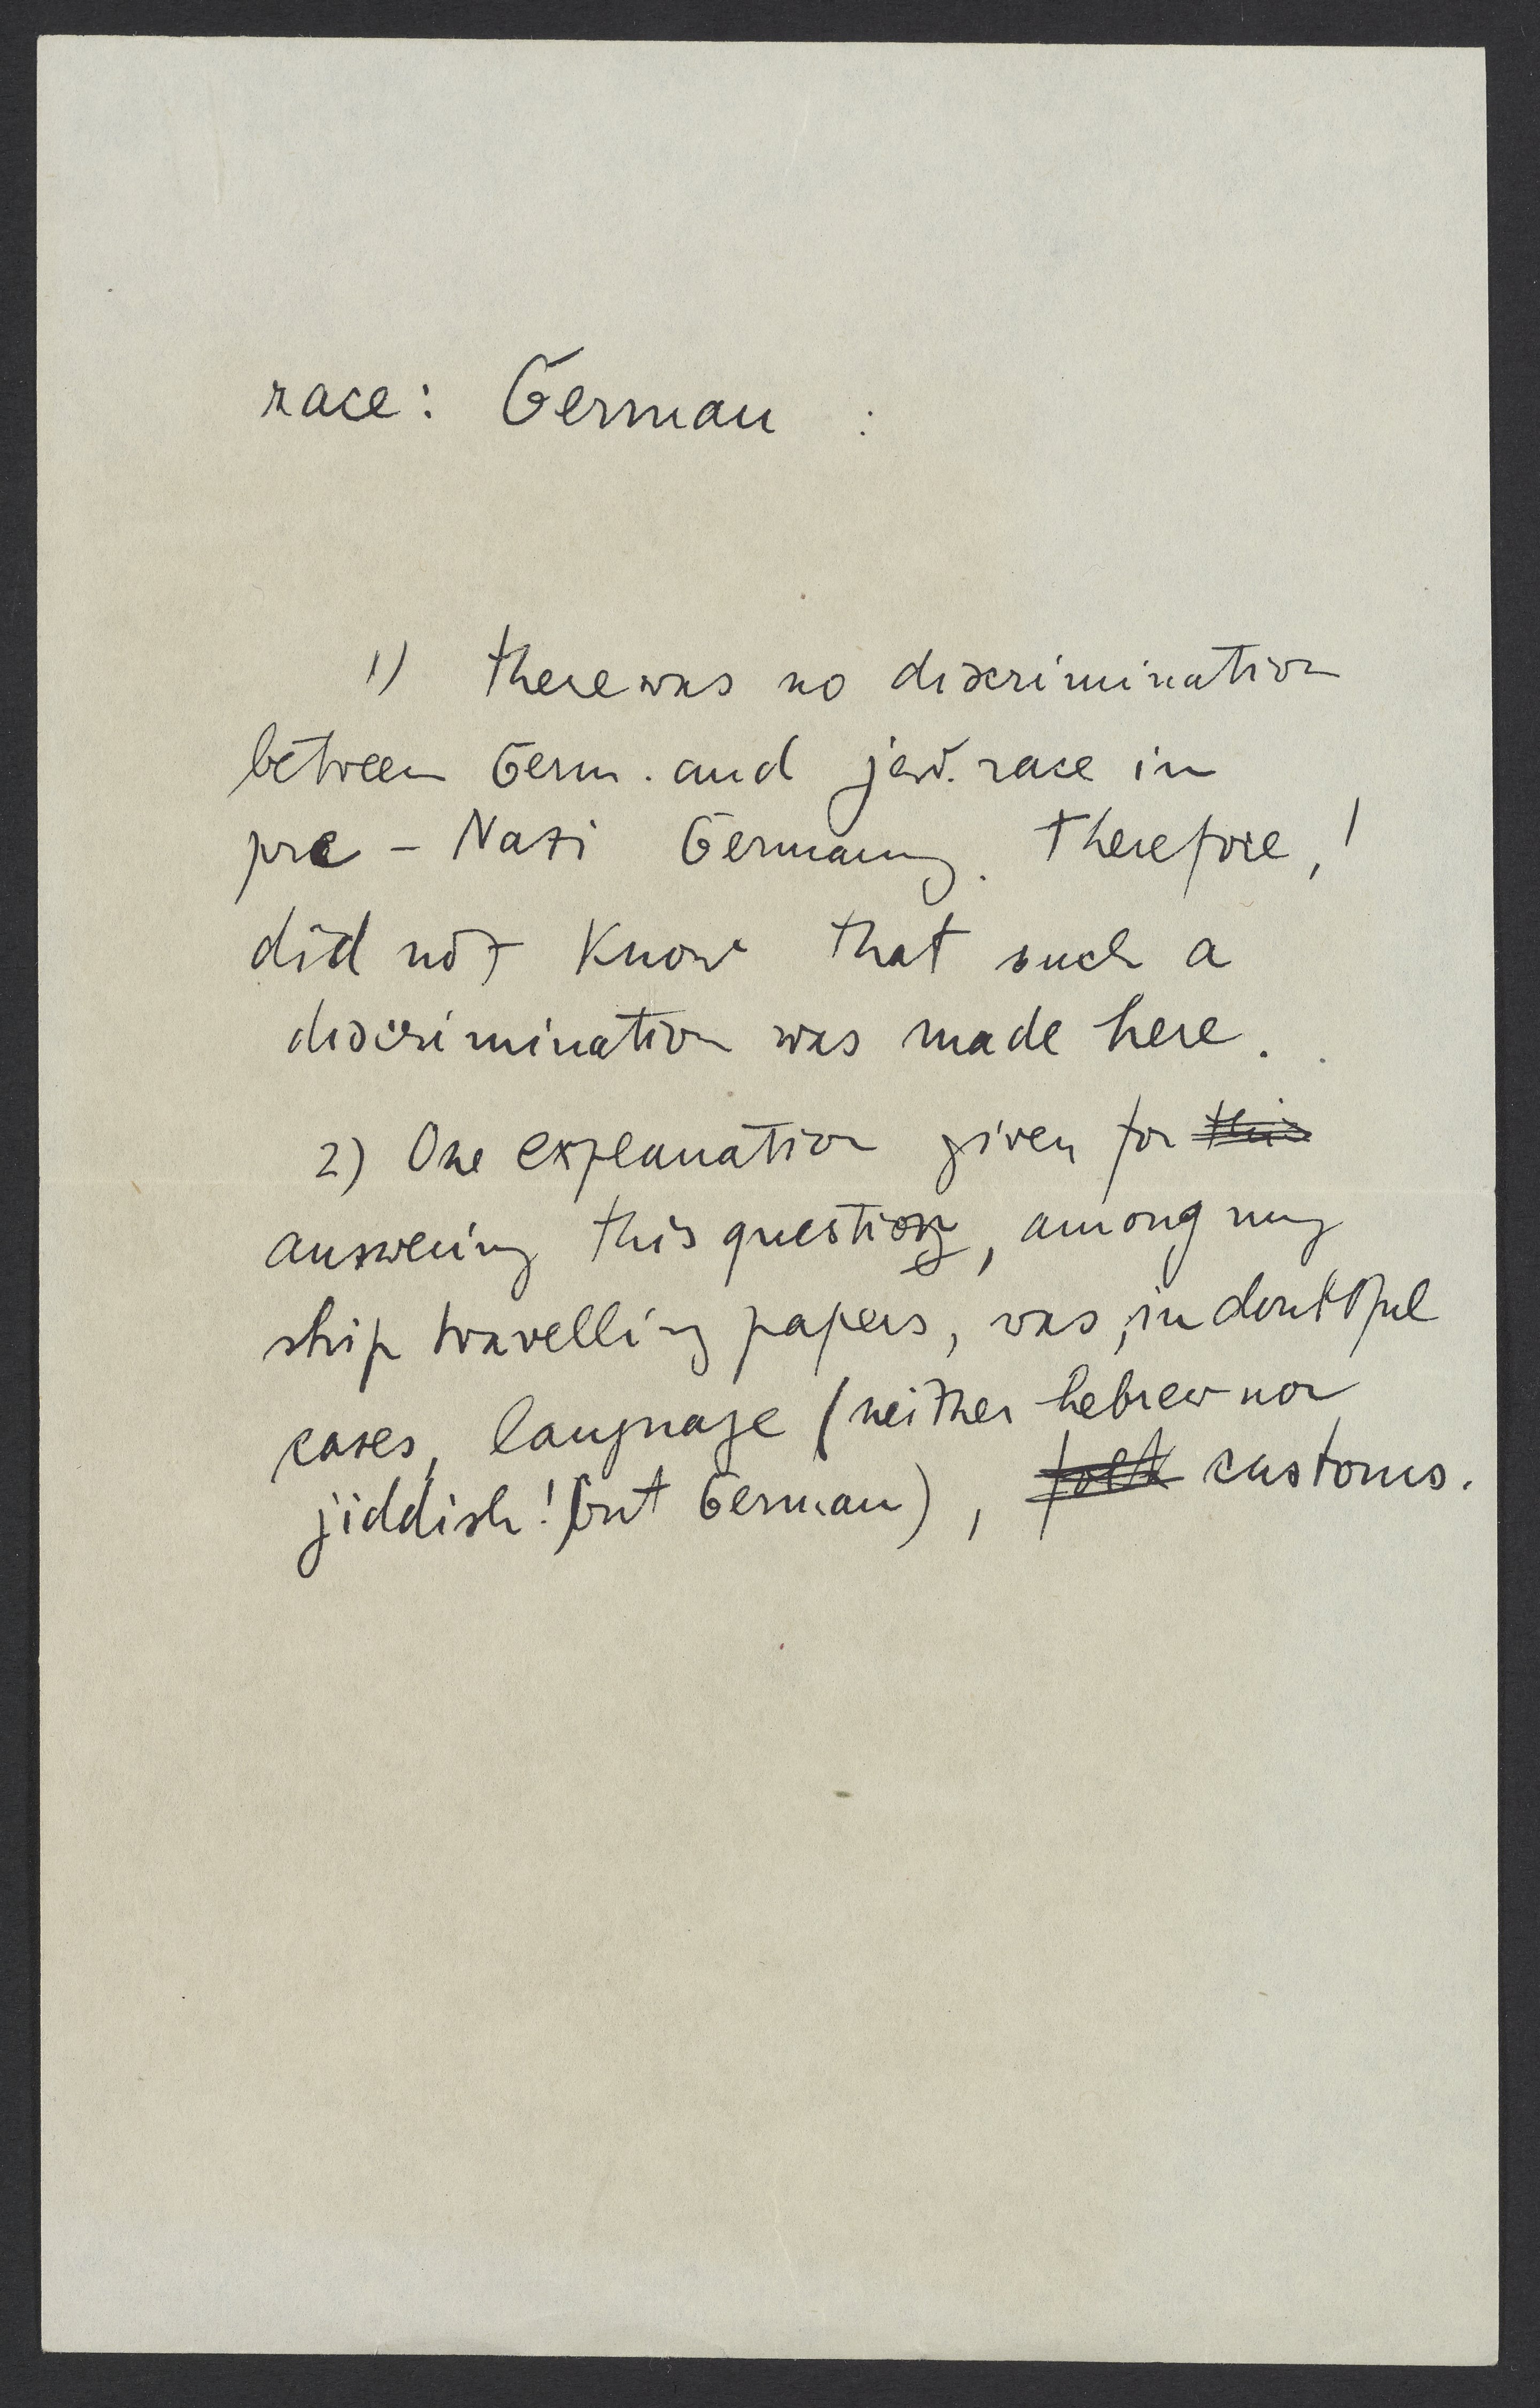 race: German :
1) there was no discrimination
between Germ. and jew. race in
pre - Nazi Germany. Therefore, I
did not know that such a
discrimination was made here.
2) One explanation given for this
answering this question, among my
ship travelling papers, was, in doubtful
cases, language (neither hebrew nor
jiddish! but German), folk customs.